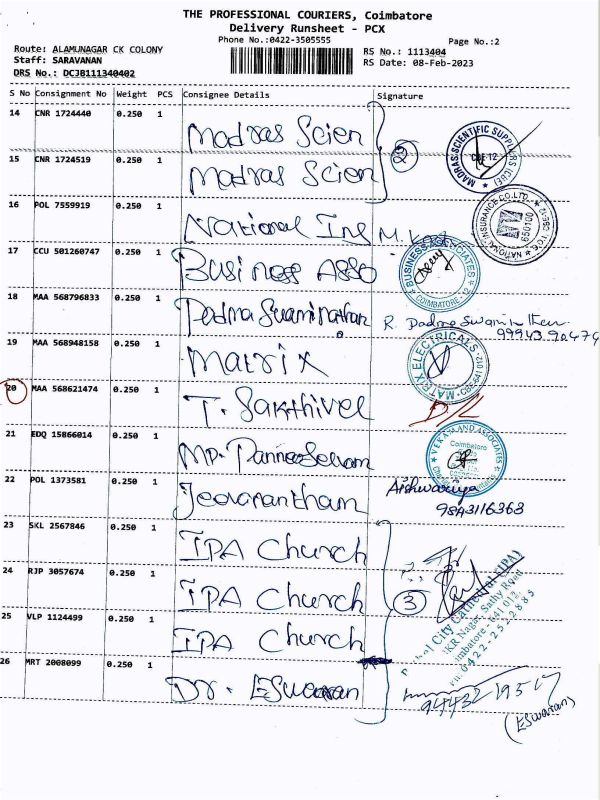 THE PROFESSIONAL COURIERS, Coimbatore
Delivery Runsheet - PCX
Phone No.:0422-3505555
Page No.:2
Route: ALAMUNAGAR CK COLONY
Staff: SARAVANAN
DRS No.: DCJB111340402
RS No.: 1113404
RS Date: 08-Feb-2023
S No Consignment No Weight PCS Consignee Details Signature
14 CNR 1724440 0.250 1 Madras Scien
15 CNR 1724519 0.250 1 Madras Scien
2
MADRAS SCIENTIFIC SUPPLIERS (CBE)
CBE-12
16 POL 7559919 0.250 1 National Ins
NATIONAL INSURANCE CO. LTD.
650100
17 CCU 501260747 0.250 1 Business Asso
BUSINESS ASSOCIATES
COIMBATORE-12
18 MAA 568796833 0.250 1 Padma Swaminathan R. Padma Swaminathan
19 MAA 568948158 0.250 1 Matrix
MATRIX ELECTRICALS
20 MAA 568621474 0.250 1 T. Sakthivel D/L
21 EDQ 15866014 0.250 1
ASSOCIATES
Coimbatore
22 POL 1373581 0.250 1 Jeevanantham Aishwariya
9843116363
23 SKL 2567846 0.250 1 IPA Church
24 RJP 3057674 0.250 1 IPA Church
25 VLP 1124499 0.250 1 IPA Church
3
City Cathedral (IPA)
KR Nagar, Sathy Road
Coimbatore - 641 012
0422-2522885
26 MRT 2008099 0.250 1 Dr. Eswaran
(Eswaran)